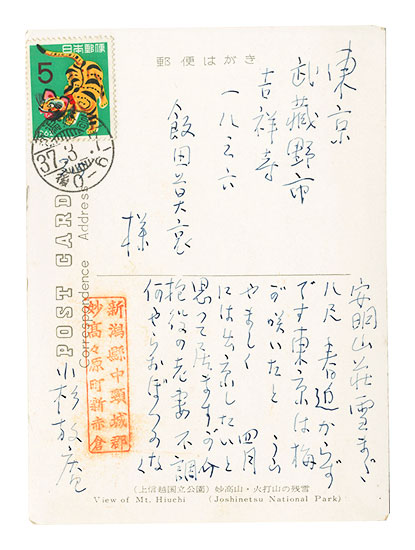 日本郵便
5
37.3.
郵便はがき
東京
武蔵野市
吉祥寺
一八三六
飯田
様
POST CARD
Correspondence Address
安明山荘雪まだ
八尺 春近からず
です東京は梅
が咲いたと うら
やましく 四月
には出京したいと
思って居ますが介
抱役の老妻不調
何やらおぼつかなく
小杉放庵
新潟縣中頸城郡
妙高々原町新赤倉
(上信越国立公園) 妙高山・火打山の残雪
View of Mt. Hiuchi (Joshinetsu National Park)